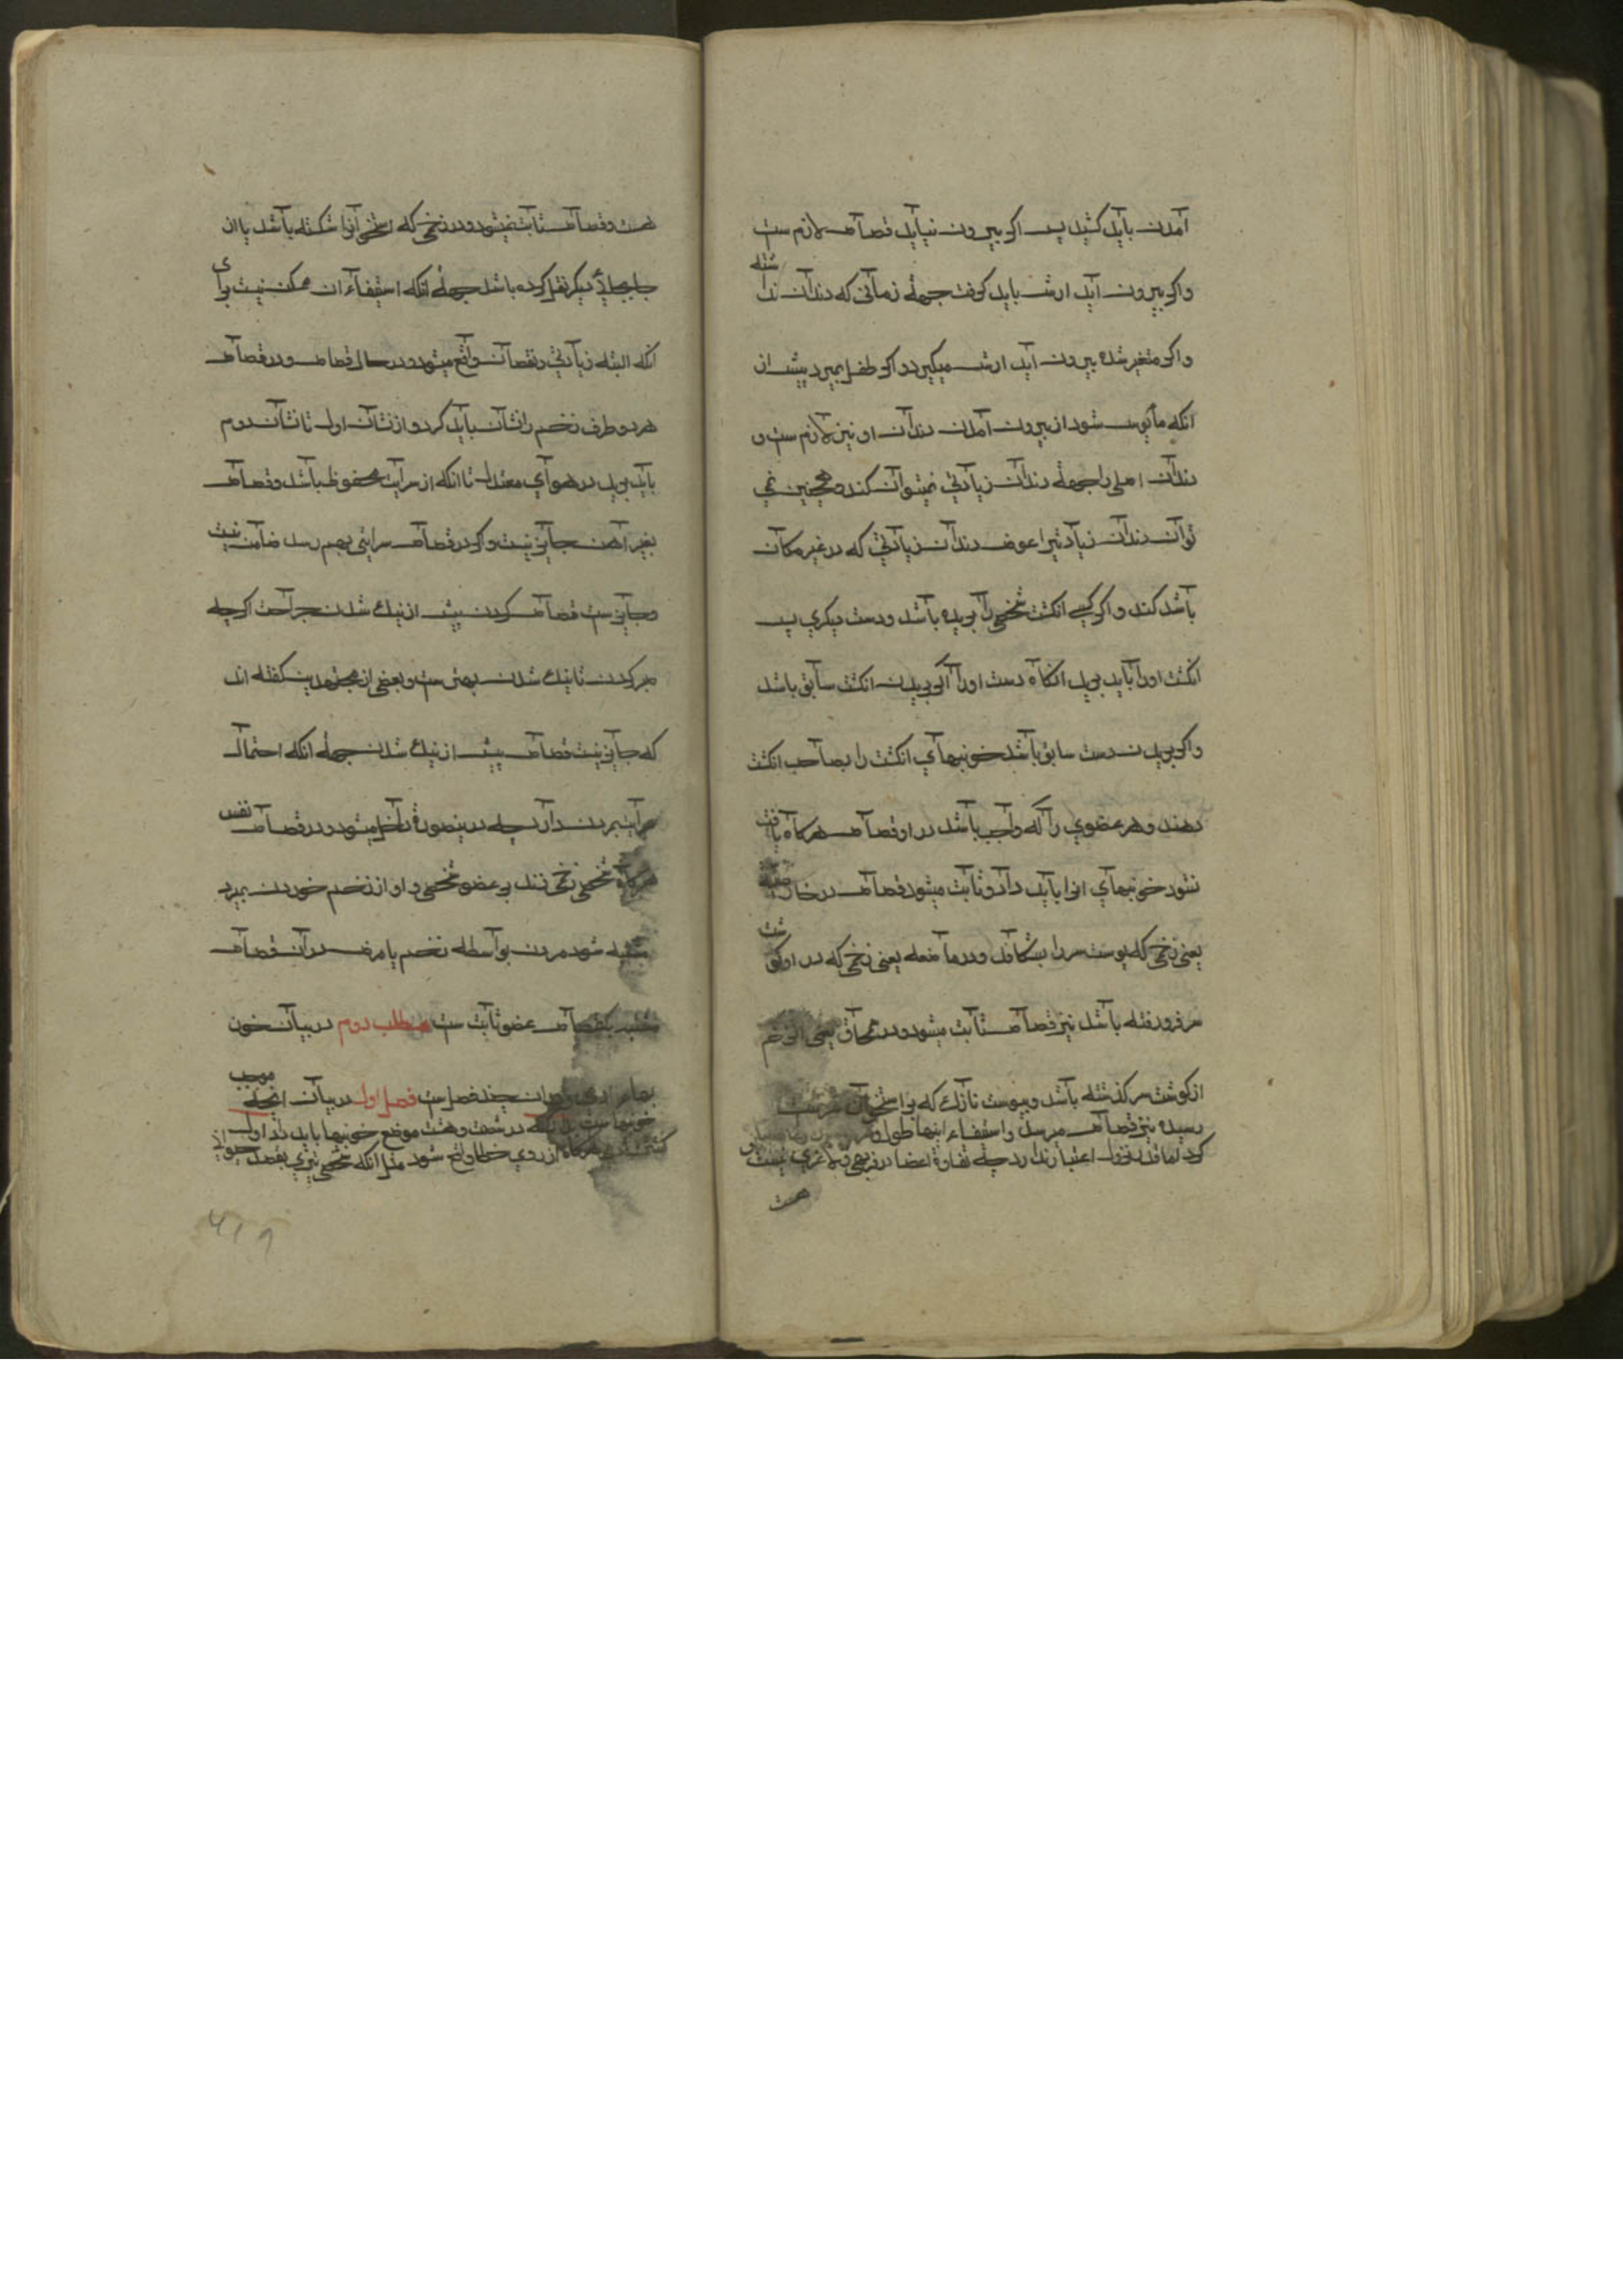 آمدن باید کشید پس اکر بیرون نیاید قصاص لازم ست
واکر بیرون اید ارش باید کرفت جهة زمانی که دندان نداشته
واکر متغیر شده بیرون اید ارش میکیرد واکر طفل بمیرد پیش از
انکه مأیوس شود از بیرون آمدن دندان او نیز لازم ست و
دندان اصلی را جهة دندان زیادتی نمیتوان کند وهمچنین نمی
توان دندان زیادتیرا عوض دندان زیادتی که در غیر مکان
باشد کند و اکر کسی انکشت شخصی را بریده باشد ودست دیکری پس
انکشت اورا باید برید انکاه دست اورا اکر بریدن انکشت سابق باشد
واکر بریدن دست سابق باشد خونبهای انکشت را بصاحب انکشت
دهند وهر عضوی را که واجب باشد در او قصاص هرکاه یافت
نشود خونبهای انرا باید داد وثابت میشود قصاص در خارصه
یعنی زخمی که پوست سر را بشکافد ودر ماضعه یعنی زخمی که در اوکوشت
سر فرورفته باشد نیز قصاص ثابت میشود ودر سمحاق یعنی از زخم
از کوشت سر کذشته باشد وبپوست نازک که بر استخوان سرست
رسیده نیز قصاص میرسد واستیفاء اینها طول و
کرد اما در نزول اعتبار ندارد چه تفاوة اعضا در فربهی ولاغری نیست و
هست
هست وقصاص ثابت نمیشود ودر زخمی که استخوانرا شکسته باشد یا از
جا بجای دیکر نقل کرده باشد جهة انکه استیفاء ان ممکن نیست برای
انکه البته زیادتی ونقصان واقع میشود در حال قصاص ودر قصاص
هر دو طرف زخم را نشان باید کرد واز نشان اول تا نشان دوم
باید برید در هوای معتدل تا انکه از سرایت محفوظ باشد وقصاص
بغیر آهن جایز نیست واکر در قصاص سرایتی بهم رسد ضامن نیست
وجایز ست قصاص کردن پیش از نیک شدن جراحت اکرچه
صبر کردن تا نیک شدن بهتر ست وبعضی از مجتهدین کفته اند
که جایز نیست قصاص پیش از نیک شدن جهة انکه احتمال
سرایت بمردن دارد چه درینصورة داخل میشود در قصاص نفس
هرکاه شخصی زخمی زند بر عضو شخصی و او از زخم خوردن بمیرد
مشتبه شود مردن بواسطه زخم یا مرض در آن قصاص
قصاص عضو ثابت ست مطلب دوم در بیان خون
بها ودران چند فصل ست فصل اول در بیان انچه موجب
خونبها ست در شصت وهشت موضع خونبها باید داد اول
کشتن هرکاه از روی خطا واقع شود مثل انکه شخصی تیری بقصد حیوانی
۴۱۹